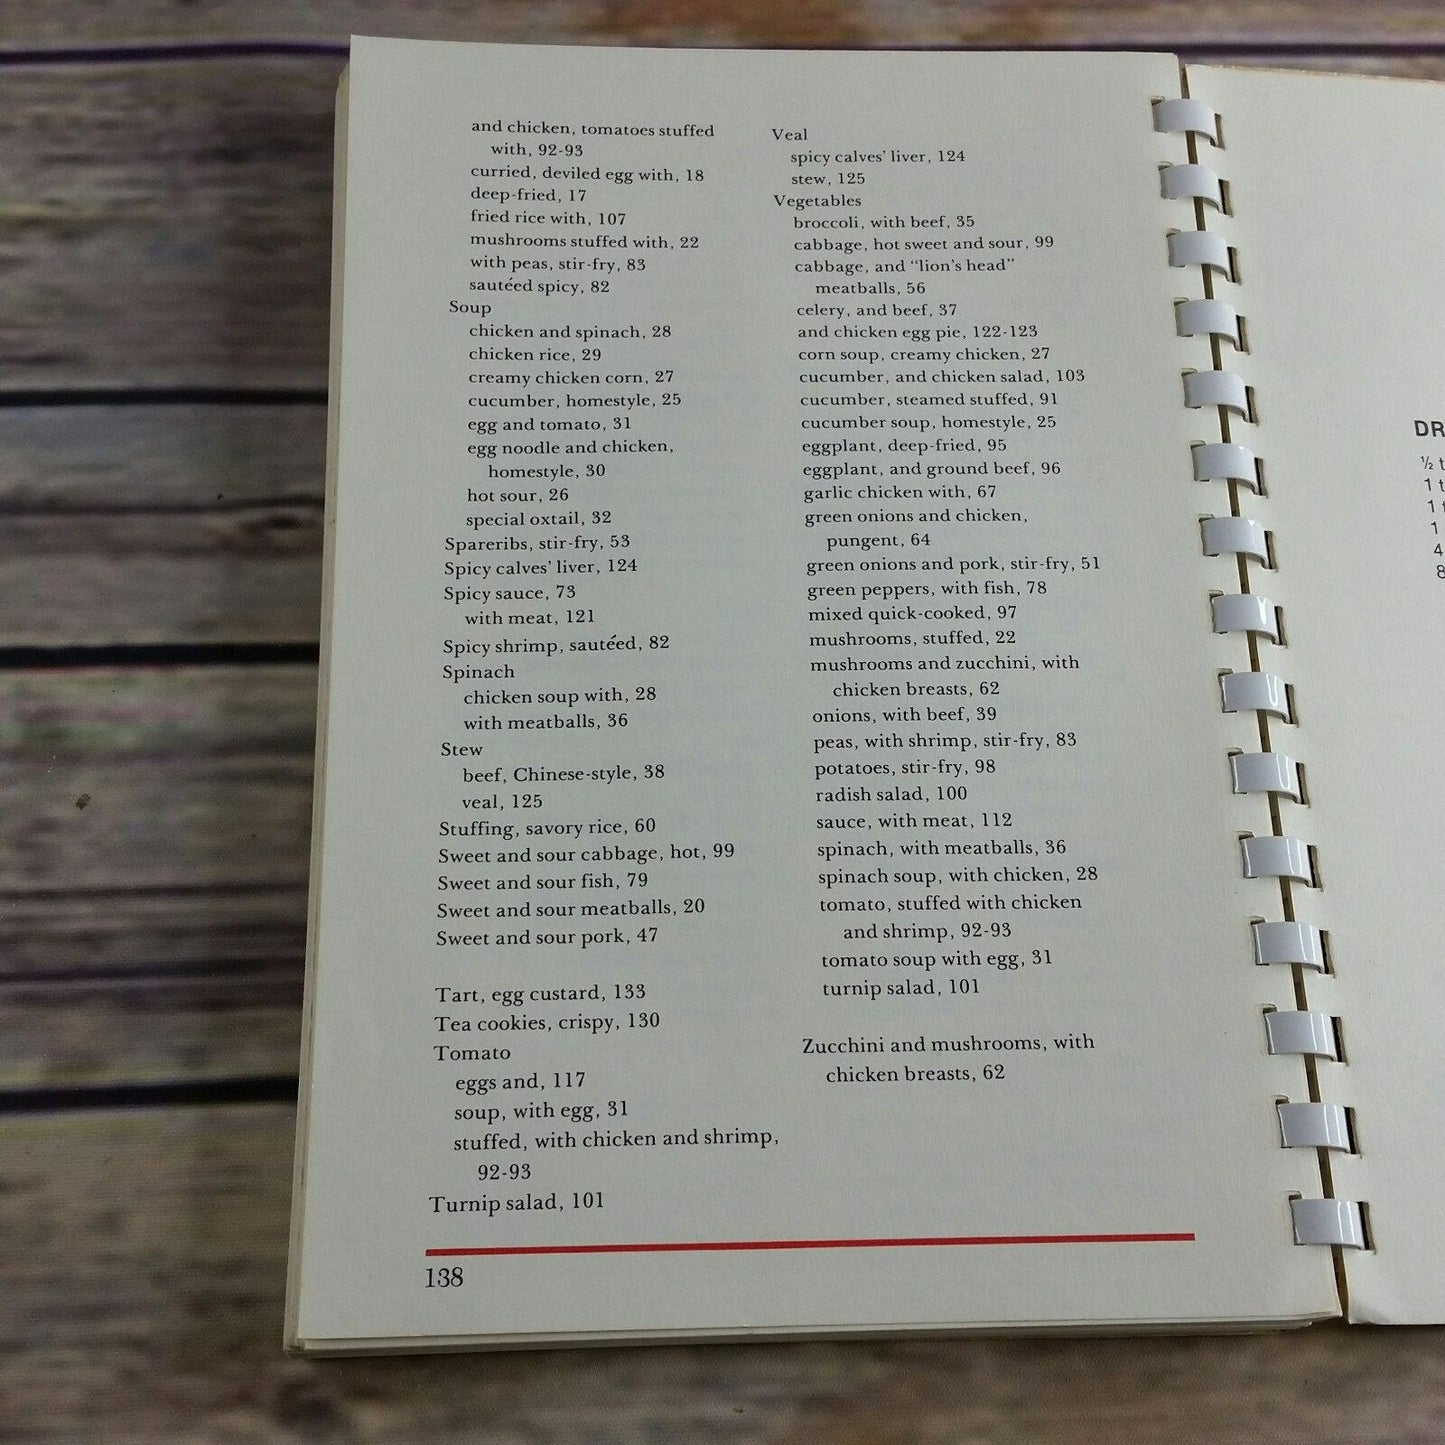 and chicken, tomatoes stuffed
with, 92-93
curried, deviled egg with, 18
deep-fried, 17
fried rice with, 107
mushrooms stuffed with, 22
with peas, stir-fry, 83
sautéed spicy, 82
Soup
chicken and spinach, 28
chicken rice, 29
creamy chicken corn, 27
cucumber, homestyle, 25
egg and tomato, 31
egg noodle and chicken,
homestyle, 30
hot sour, 26
special oxtail, 32
Spareribs, stir-fry, 53
Spicy calves' liver, 124
Spicy sauce, 73
with meat, 121
Spicy shrimp, sautéed, 82
Spinach
chicken soup with, 28
with meatballs, 36
Stew
beef, Chinese-style, 38
veal, 125
Stuffing, savory rice, 60
Sweet and sour cabbage, hot, 99
Sweet and sour fish, 79
Sweet and sour meatballs, 20
Sweet and sour pork, 47
Tart, egg custard, 133
Tea cookies, crispy, 130
Tomato
eggs and, 117
soup, with egg, 31
stuffed, with chicken and shrimp,
92-93
Turnip salad, 101
Veal
spicy calves' liver, 124
stew, 125
Vegetables
broccoli, with beef, 35
cabbage, hot sweet and sour, 99
cabbage, and "lion's head"
meatballs, 56
celery, and beef, 37
and chicken egg pie, 122-123
corn soup, creamy chicken, 27
cucumber, and chicken salad, 103
cucumber, steamed stuffed, 91
cucumber soup, homestyle, 25
eggplant, deep-fried, 95
eggplant, and ground beef, 96
garlic chicken with, 67
green onions and chicken,
pungent, 64
green onions and pork, stir-fry, 51
green peppers, with fish, 78
mixed quick-cooked, 97
mushrooms, stuffed, 22
mushrooms and zucchini, with
chicken breasts, 62
onions, with beef, 39
peas, with shrimp, stir-fry, 83
potatoes, stir-fry, 98
radish salad, 100
sauce, with meat, 112
spinach, with meatballs, 36
spinach soup, with chicken, 28
tomato, stuffed with chicken
and shrimp, 92-93
tomato soup with egg, 31
turnip salad, 101
Zucchini and mushrooms, with
chicken breasts, 62
138
DR
½ t
1 t
1 t
1
4